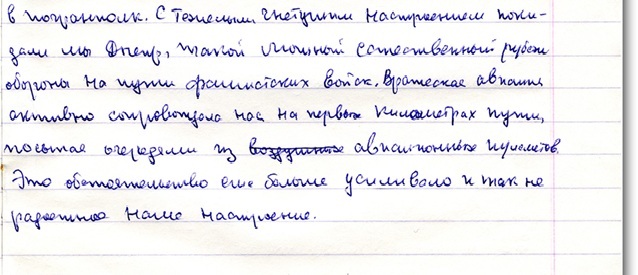 в погранполк. С тяжелым гнетущим настроением поки-
дали мы Днепр, такой мощный естественный рубеж
обороны на пути фашистских войск. Вражеская авиация
активно сопровождала нас на первых километрах пути,
посыпая очередями из воздушных авиационных пулеметов.
Это обстоятельство еще больше усиливало и так не
радостное наше настроение.